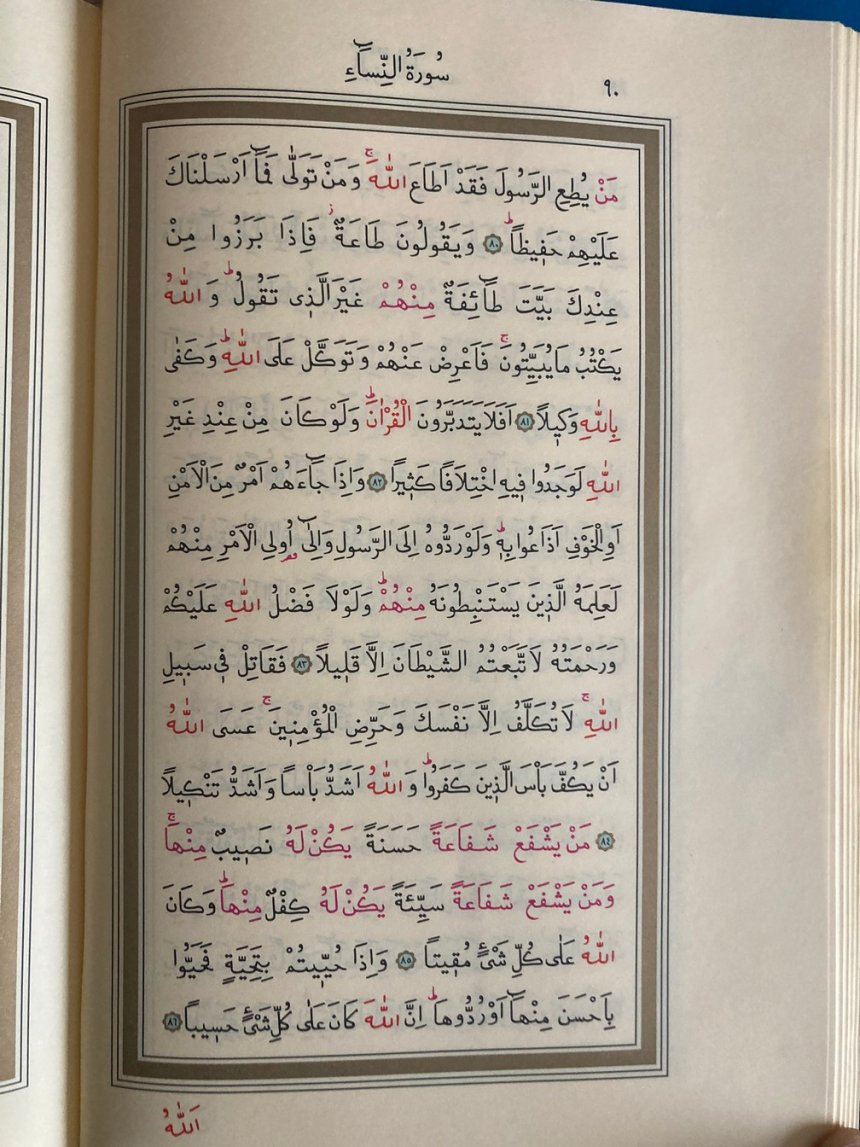 سُورَةُ النِّسَٓاءِ
٩٠
مَنْ يُطِعِ الرَّسُولَ فَقَدْ اَطَاعَ اللّٰهَۚ وَمَنْ تَوَلّٰى فَمَٓا اَرْسَلْنَاكَ
عَلَيْهِمْ حَفٖيظاًۜ ﴿٨٠﴾ وَيَقُولُونَ طَاعَةٌؗ فَاِذَا بَرَزُوا مِنْ
عِنْدِكَ بَيَّتَ طَٓائِفَةٌ مِنْهُمْ غَيْرَ الَّذٖى تَقُولُۜ وَاللّٰهُ
يَكْتُبُ مَا يُبَيِّتُونَۚ فَاَعْرِضْ عَنْهُمْ وَتَوَكَّلْ عَلَى اللّٰهِۜ وَكَفٰى
بِاللّٰهِ وَكٖيلاً ﴿٨١﴾ اَفَلَا يَتَدَبَّرُونَ الْقُرْاٰنَۜ وَلَوْ كَانَ مِنْ عِنْدِ غَيْرِ
اللّٰهِ لَوَجَدُوا فٖيهِ اخْتِلَافًا كَثٖيرًا ﴿٨٢﴾ وَاِذَا جَٓاءَهُمْ اَمْرٌ مِنَ الْاَمْنِ
اَوِ الْخَوْفِ اَذَاعُوا بِهٖۜ وَلَوْ رَدُّوهُ اِلَى الرَّسُولِ وَاِلٰٓى اُو۬لِى الْاَمْرِ مِنْهُمْ
لَعَلِمَهُ الَّذٖينَ يَسْتَنْبِطُونَهُ مِنْهُمْۜ وَلَوْلَا فَضْلُ اللّٰهِ عَلَيْكُمْ
وَرَحْمَتُهُ لَاتَّبَعْتُمُ الشَّيْطَانَ اِلَّا قَلٖيلاً ﴿٨٣﴾ فَقَاتِلْ فٖى سَبٖيلِ
اللّٰهِۚ لَا تُكَلَّفُ اِلَّا نَفْسَكَ وَحَرِّضِ الْمُؤْمِنٖينَۚ عَسَى اللّٰهُ
اَنْ يَكُفَّ بَاْسَ الَّذٖينَ كَفَرُواۜ وَاللّٰهُ اَشَدُّ بَاْساً وَاَشَدُّ تَنْكٖيلاً
﴿٨٤﴾ مَنْ يَشْفَعْ شَفَاعَةً حَسَنَةً يَكُنْ لَهُ نَصٖيبٌ مِنْهَاۚ
وَمَنْ يَشْفَعْ شَفَاعَةً سَيِّئَةً يَكُنْ لَهُ كِفْلٌ مِنْهَاۜ وَكَانَ
اللّٰهُ عَلٰى كُلِّ شَیْءٍ مُقٖيتاً ﴿٨٥﴾ وَاِذَا حُيّٖيتُمْ بِتَحِيَّةٍ فَحَيُّوا
بِاَحْسَنَ مِنْهَٓا اَوْ رُدُّوهَاۜ اِنَّ اللّٰهَ كَانَ عَلٰى كُلِّ شَیْءٍ حَسٖيباً ﴿٨٦﴾
اَللّٰهُ